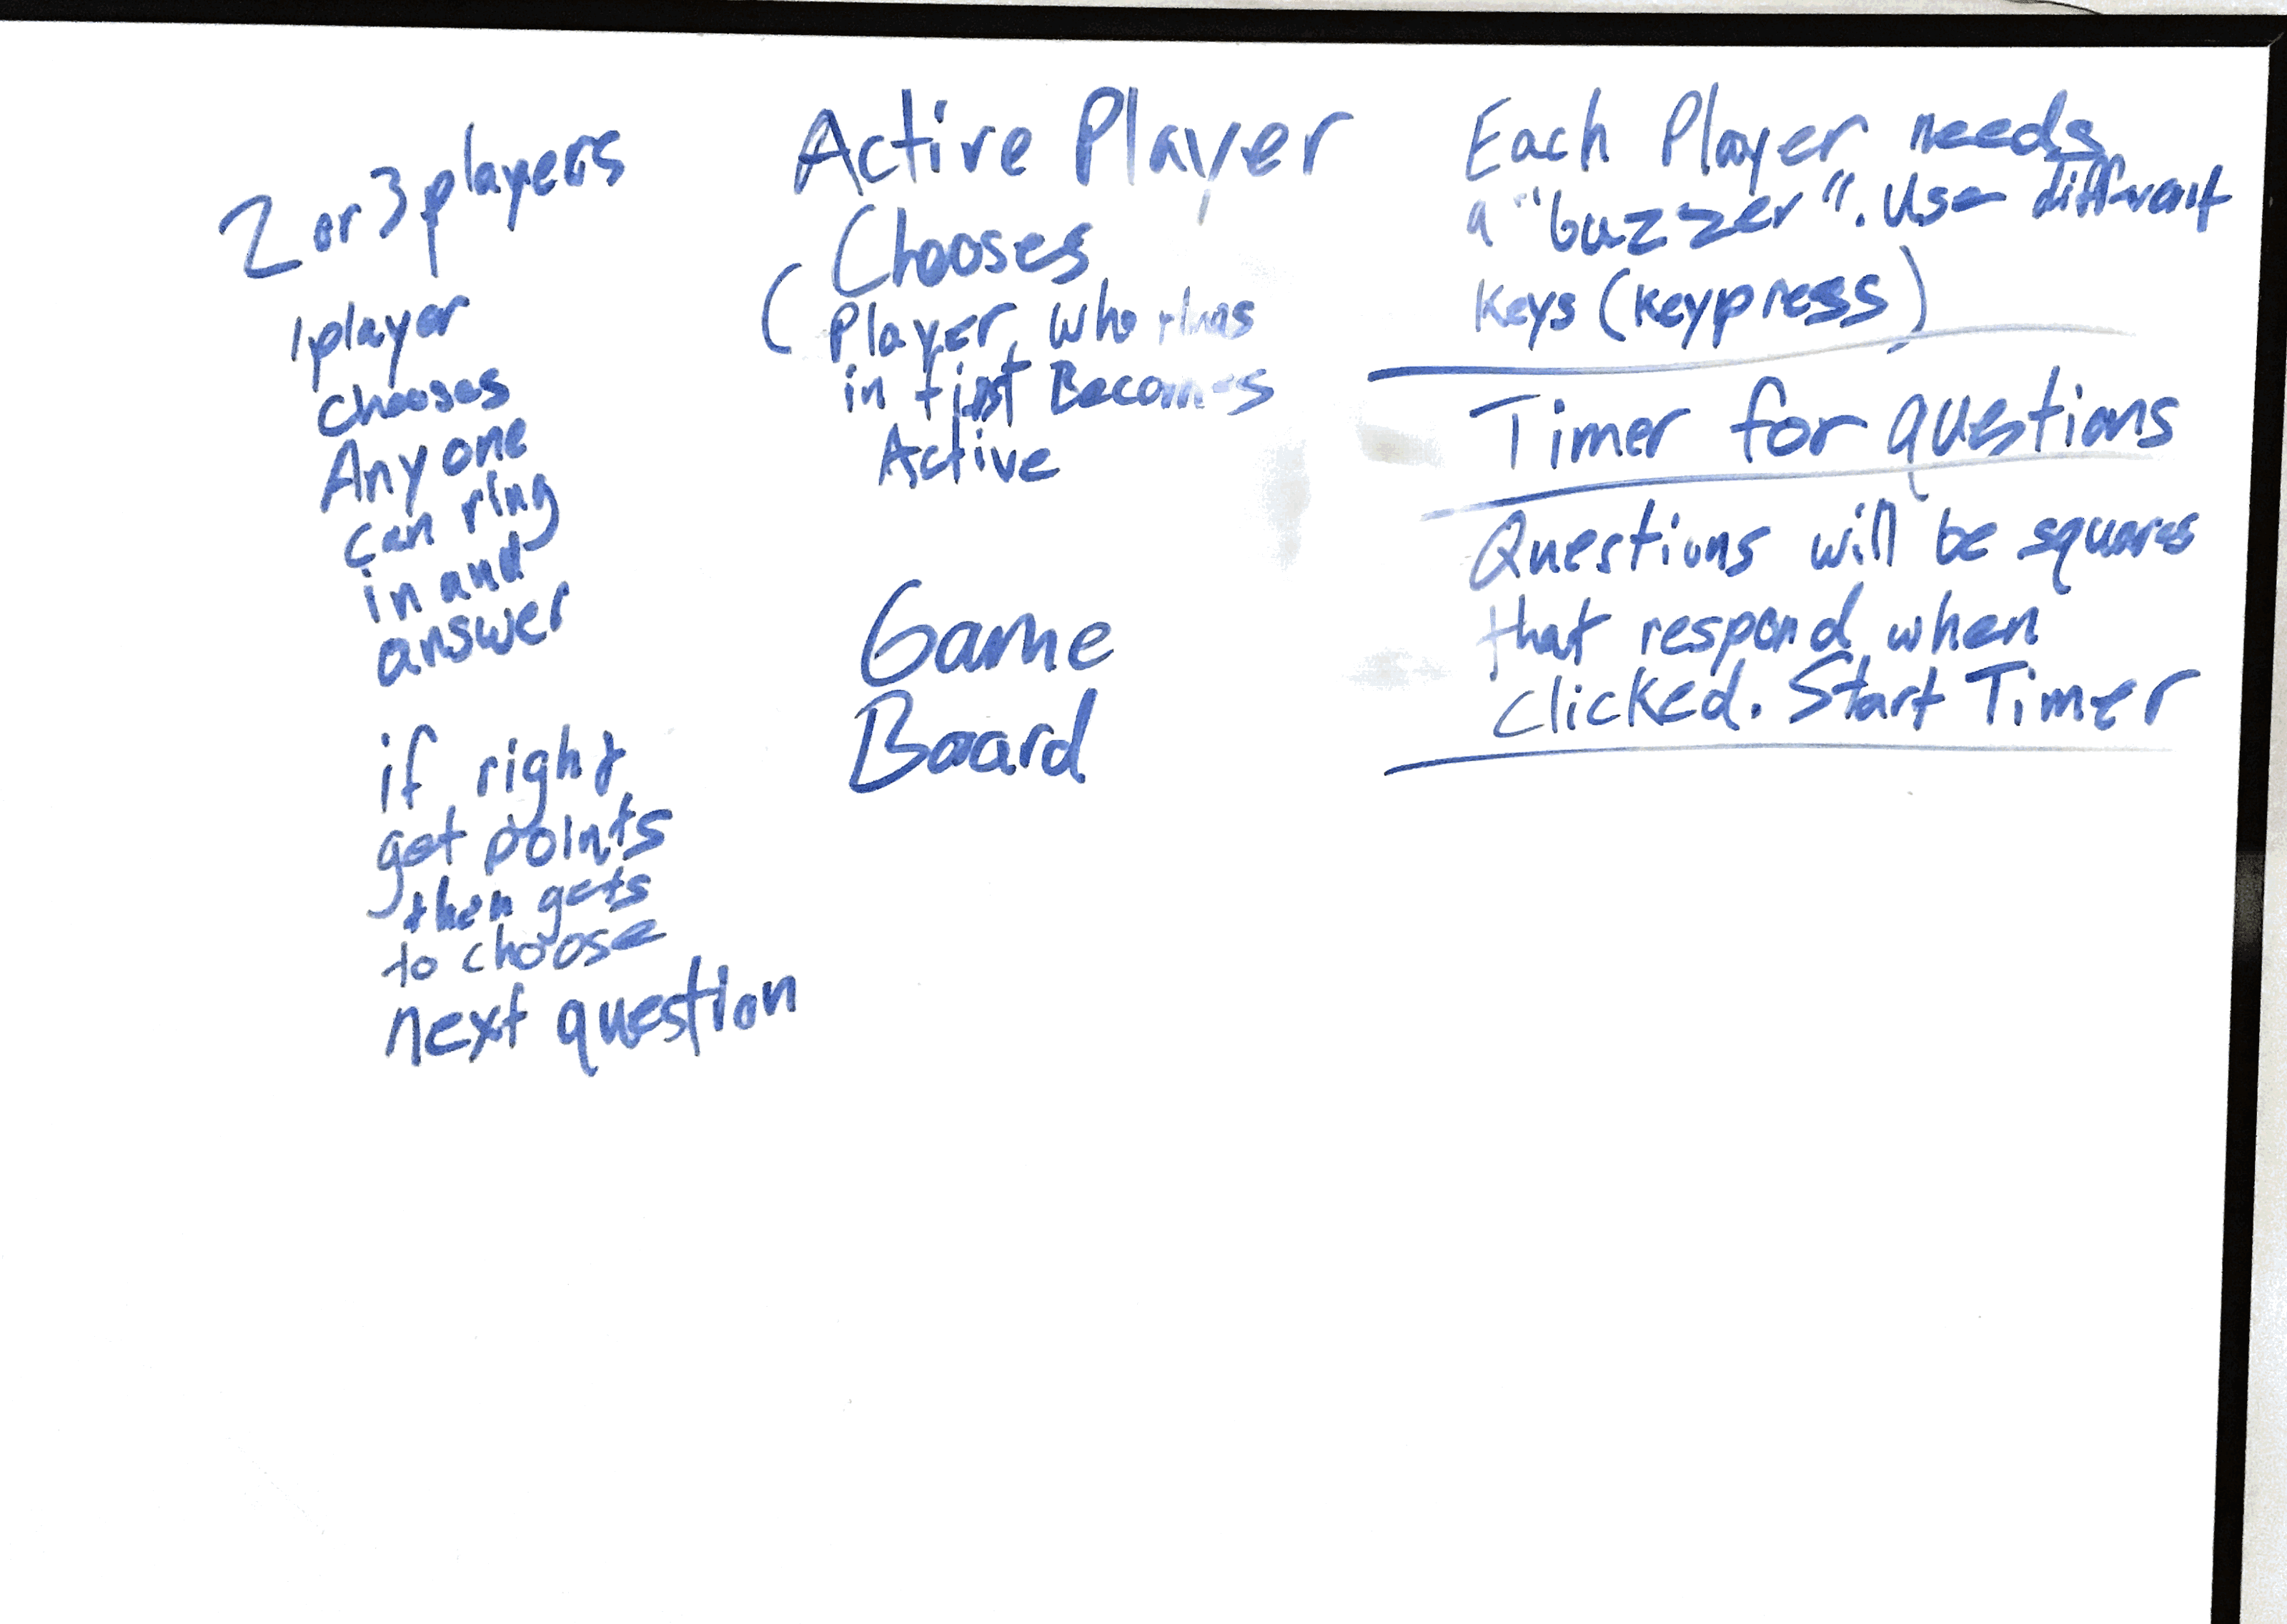 2 or 3 players
1 player
chooses
Any one
can ring
in and
answer
if right
get points
then gets
to choose
next question
Active Player
Chooses
( Player who rings
in first Becomes
Active
Game
Board
Each Player needs
a "buzzer". Use different
Keys (keypress)
Timer for questions
Questions will be squares
that respond when
clicked. Start Timer